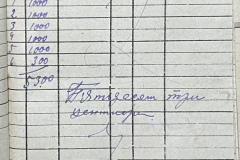 1000
2 1000
3 1000
4 1000
5 1000
6 300
5300
Пятьдесят три
центнера